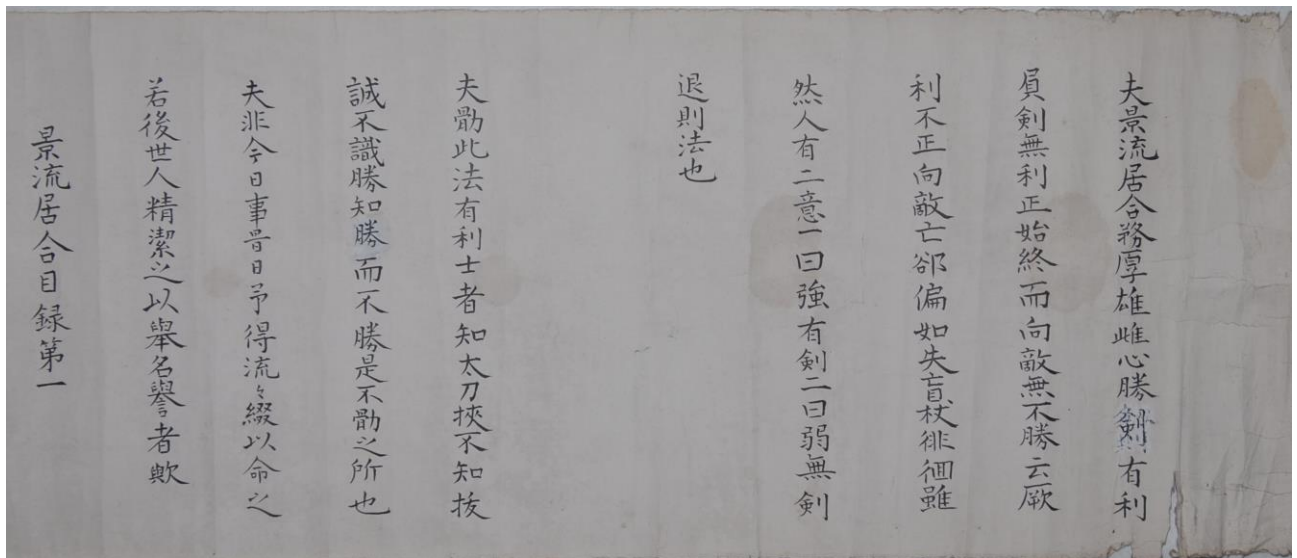 夫景流居合務厚雄雌心勝劔有利
員剣無利正始終而向敵無不勝云厥
利不正向敵亡郤偏如失盲杖徘徊雖
然人有二意一曰強有剣二曰弱無剣
退則法也
夫勤此法有利士者知太刀挾不知抜
誠不識勝知勝而不勝是不勤之所也
夫非今日事昔日予得流々綴以命之
若後世人精潔之以擧名譽者歟
景流居合目録第一